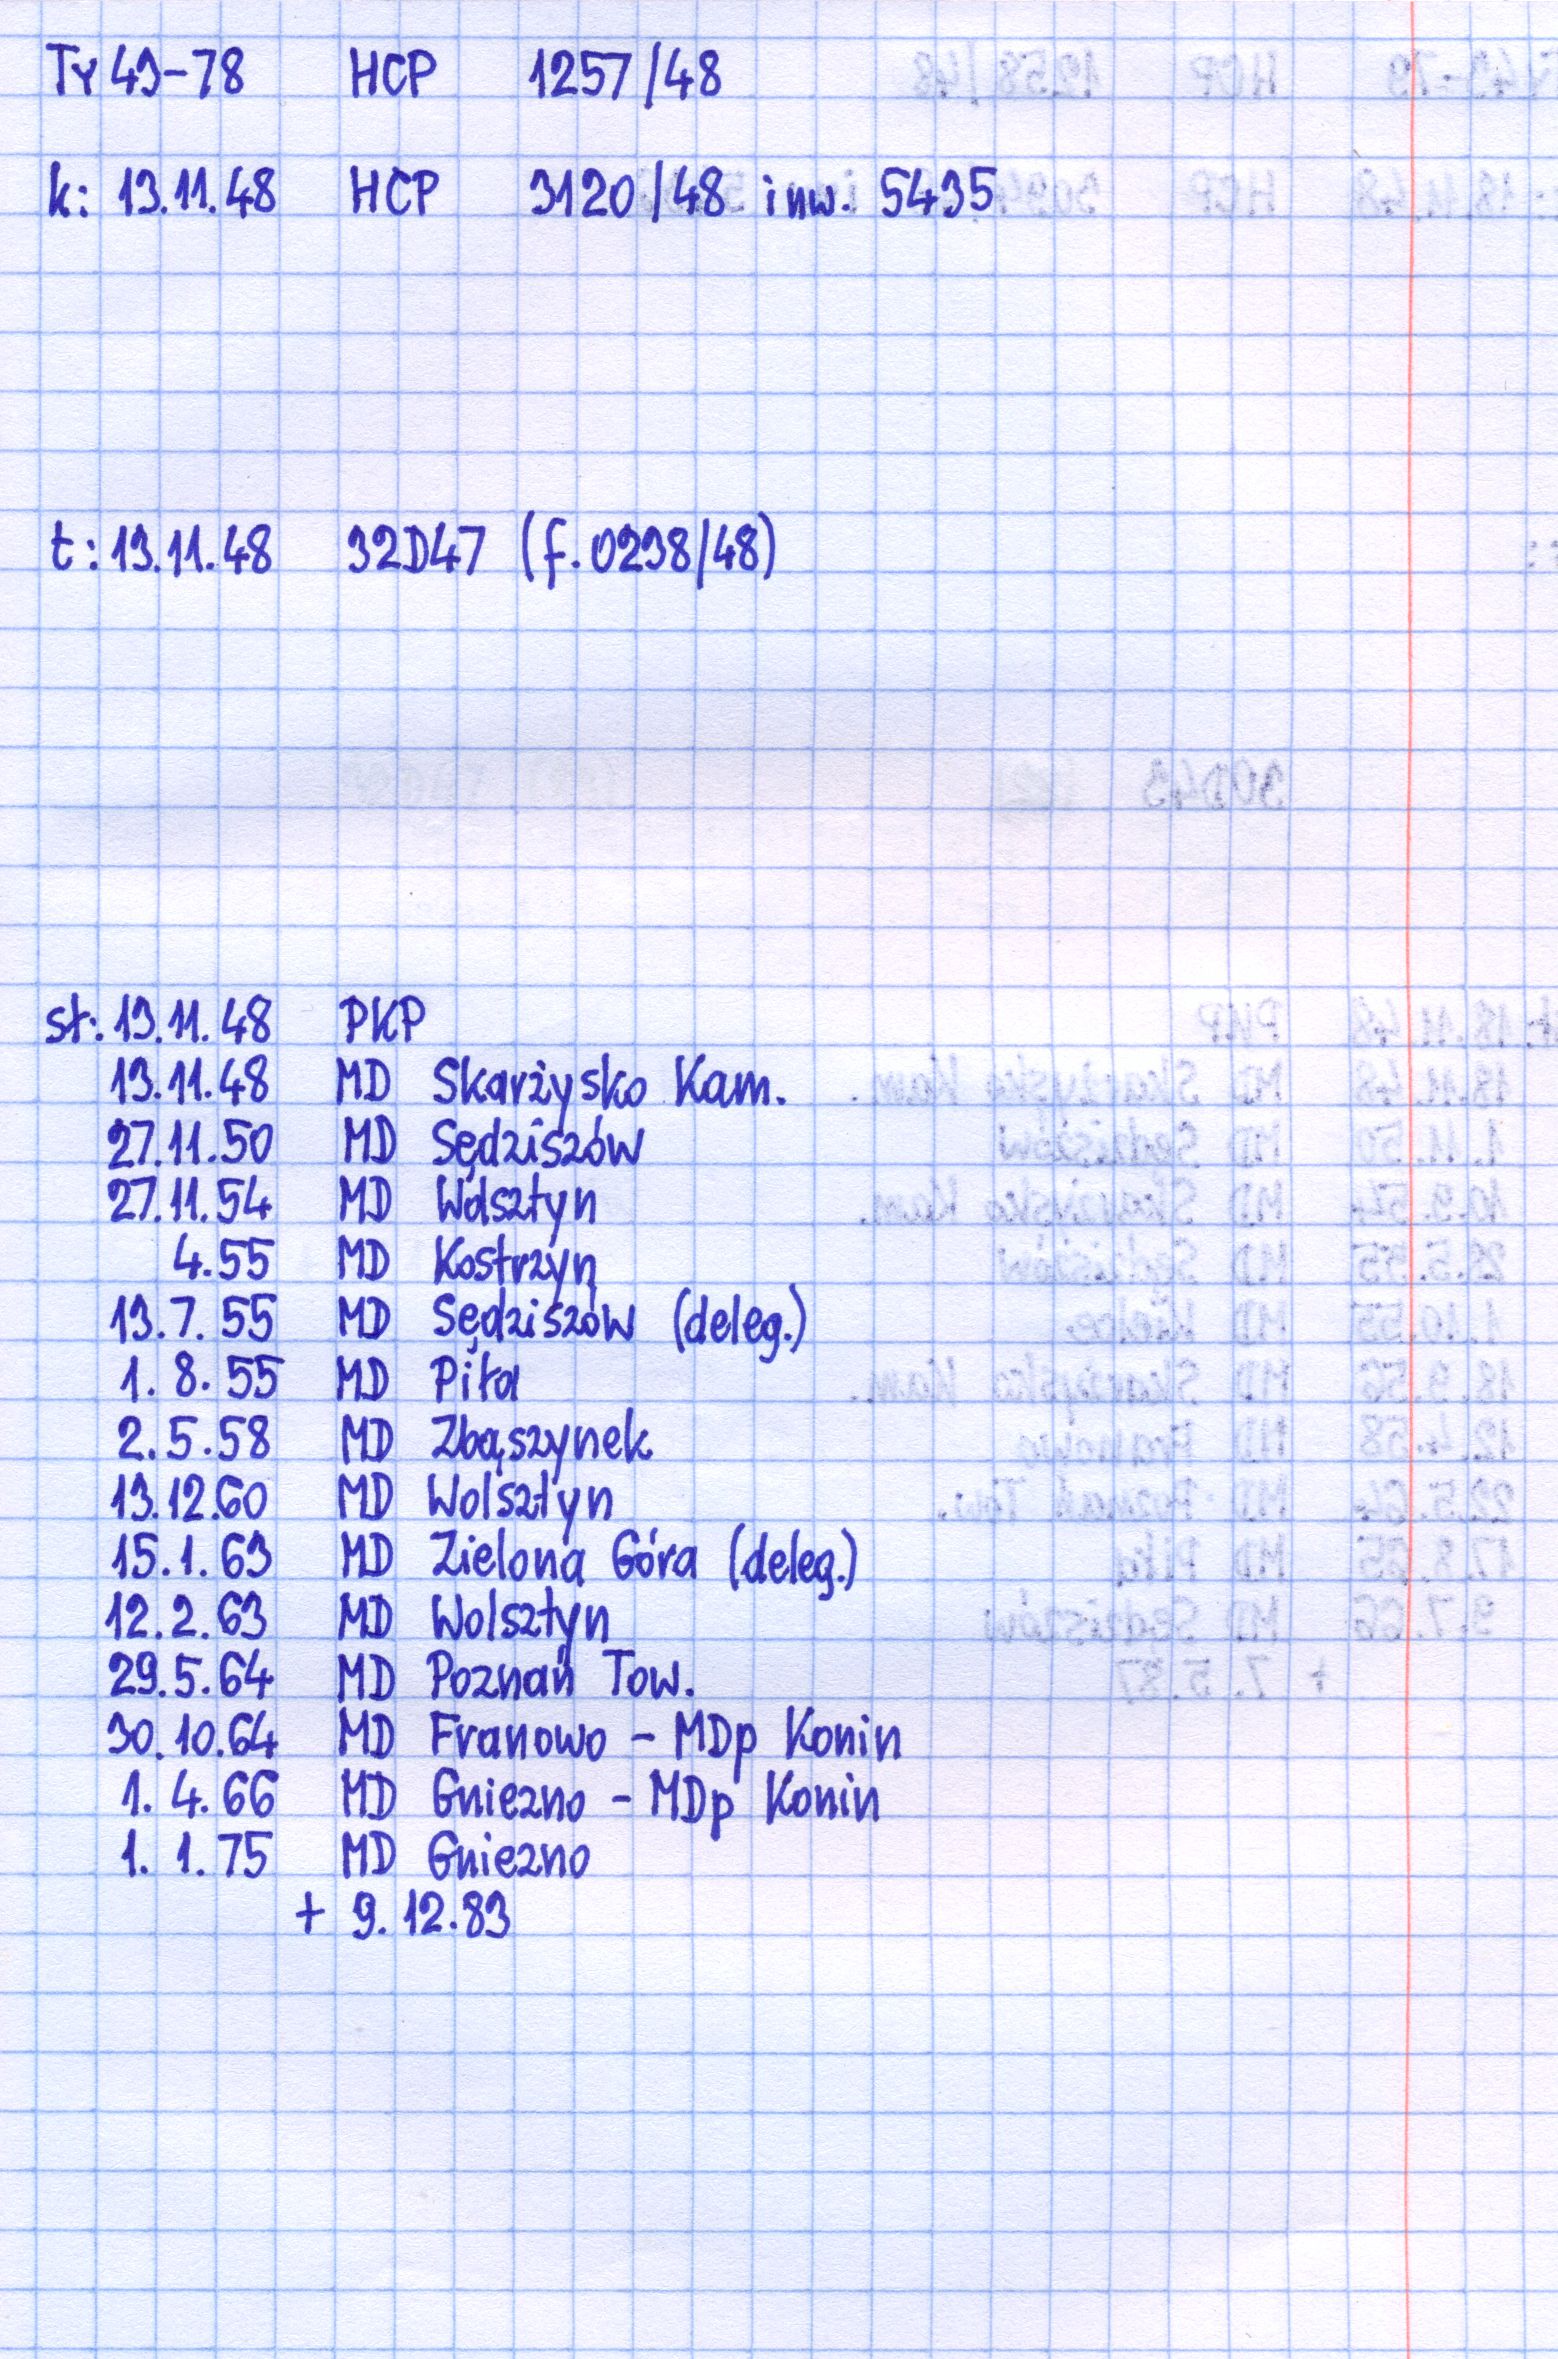 Ty 43-78 HCP 1257/48
k: 13.11.48 HCP 3120/48 inw. 5435
t: 13.11.48 32D47 (f. 0238/48)
st: 13.11.48 PKP
13.11.48 MD Skarżysko Kam.
27.11.50 MD Sędziszów
27.11.54 MD Wolsztyn
4.55 MD Kostrzyn
13.7.55 MD Sędziszów (deleg.)
1.8.55 MD Piła
2.5.58 MD Zbąszynek
13.12.60 MD Wolsztyn
15.1.63 MD Zielona Góra (deleg.)
12.2.63 MD Wolsztyn
29.5.64 MD Poznań Tow.
30.10.64 MD Franowo - MDp Konin
1.4.66 MD Gniezno - MDp Konin
1.1.75 MD Gniezno
+ 9.12.83